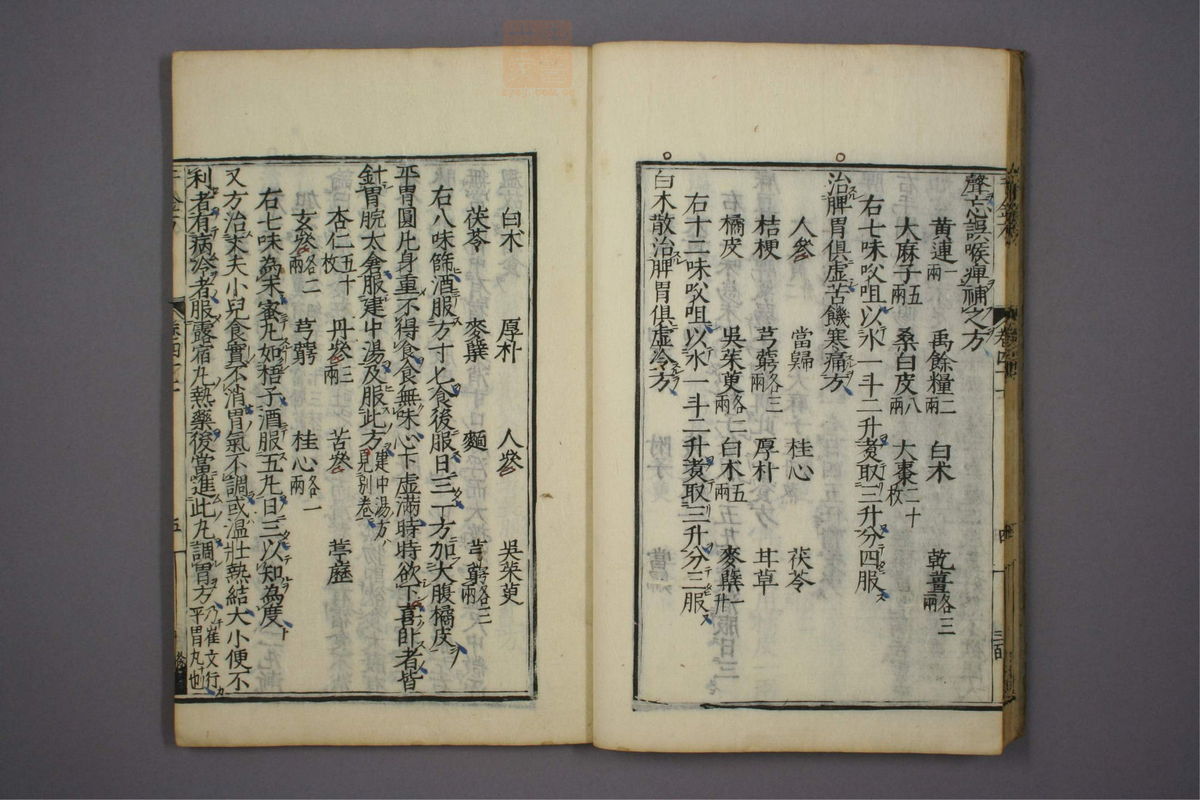 聲忘誤喉痺補之方
黄連一兩 禹餘糧二兩 白术 乾薑各三兩
大麻子五兩 桑白皮八兩 大棗二十枚
右七味㕮咀以水一斗二升煑取三升分四服
治脾胃俱虛苦饑寒痛方
人參 當歸 桂心 茯苓
桔梗 芎藭各三兩 厚朴 甘草
橘皮 吳茱萸各二兩 白术五兩 麥蘖一升
右十二味㕮咀以水一斗二升煑取三升分三服
白木散治脾胃俱虛冷方
白术 厚朴 人參 吳茱萸
茯苓 麥蘖 麯 芎藭各三兩
右八味篩酒服方寸匕食後服日三一方加大腹橘皮
平胃圓凡身重不得食食無味心下虛滿時時欲下喜卧者皆
針胃脘太倉服建中湯及服此方建中湯方見别卷
杏仁五十枚 丹參三兩 苦參 葶藶
玄參各二兩 芎藭 桂心各一兩
右七味為末蜜丸如梧子酒服五丸日三以知為度
又方治丈夫小兒食實不消胃氣不調或温壯熱結大小便不
利者有病冷者服露宿丸熱藥後當進此丸調胃方乃崔文行平胃丸也